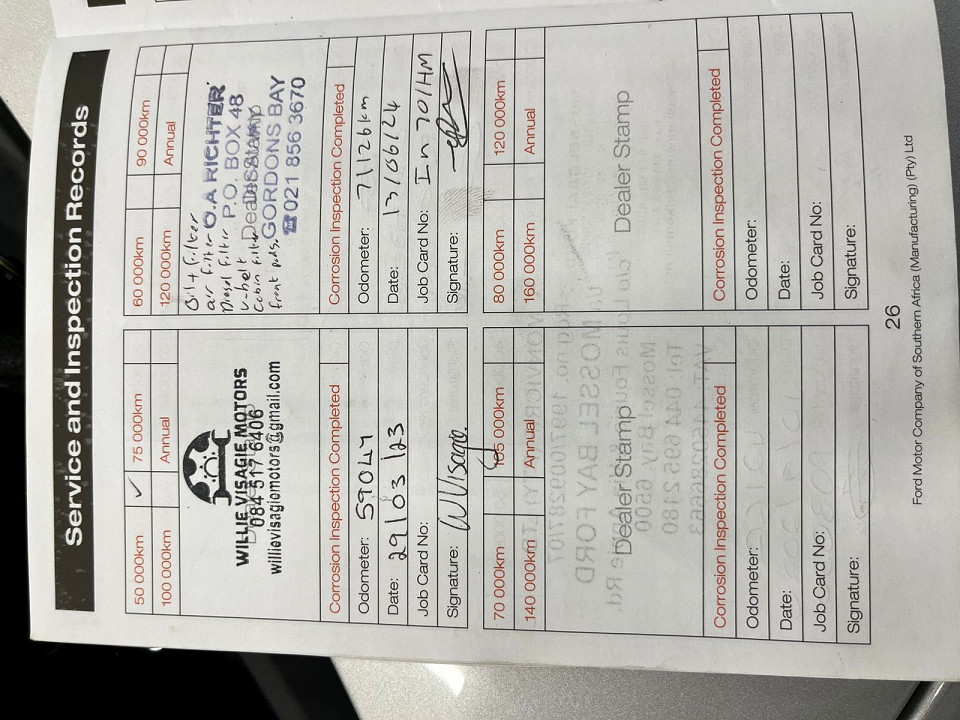 Service and Inspection Records
50 000km ✓ 75 000km
100 000km Annual
WILLIE VISAGIE MOTORS
084 517 6406
willievisagiemotors@gmail.com
Corrosion Inspection Completed
Odometer: 59047
Date: 29/03/23
Job Card No:
Signature: W Visagie.
60 000km 90 000km
120 000km Annual
Oil + Filter
air filter
Diesel filter
V-belt
Cabin filter
front pads.
O.A RICHTER
P.O. BOX 48
Dealer Stamp
GORDONS BAY
☎ 021 856 3670
Corrosion Inspection Completed
Odometer: 71126km
Date: 13/06/24
Job Card No: In 701HM
Signature:
70 000km 105 000km
140 000km Annual
Dealer Stamp
Corrosion Inspection Completed
Odometer:
Date:
Job Card No:
Signature:
80 000km 120 000km
160 000km Annual
Dealer Stamp
Corrosion Inspection Completed
Odometer:
Date:
Job Card No:
Signature:
26
Ford Motor Company of Southern Africa (Manufacturing) (Pty) Ltd